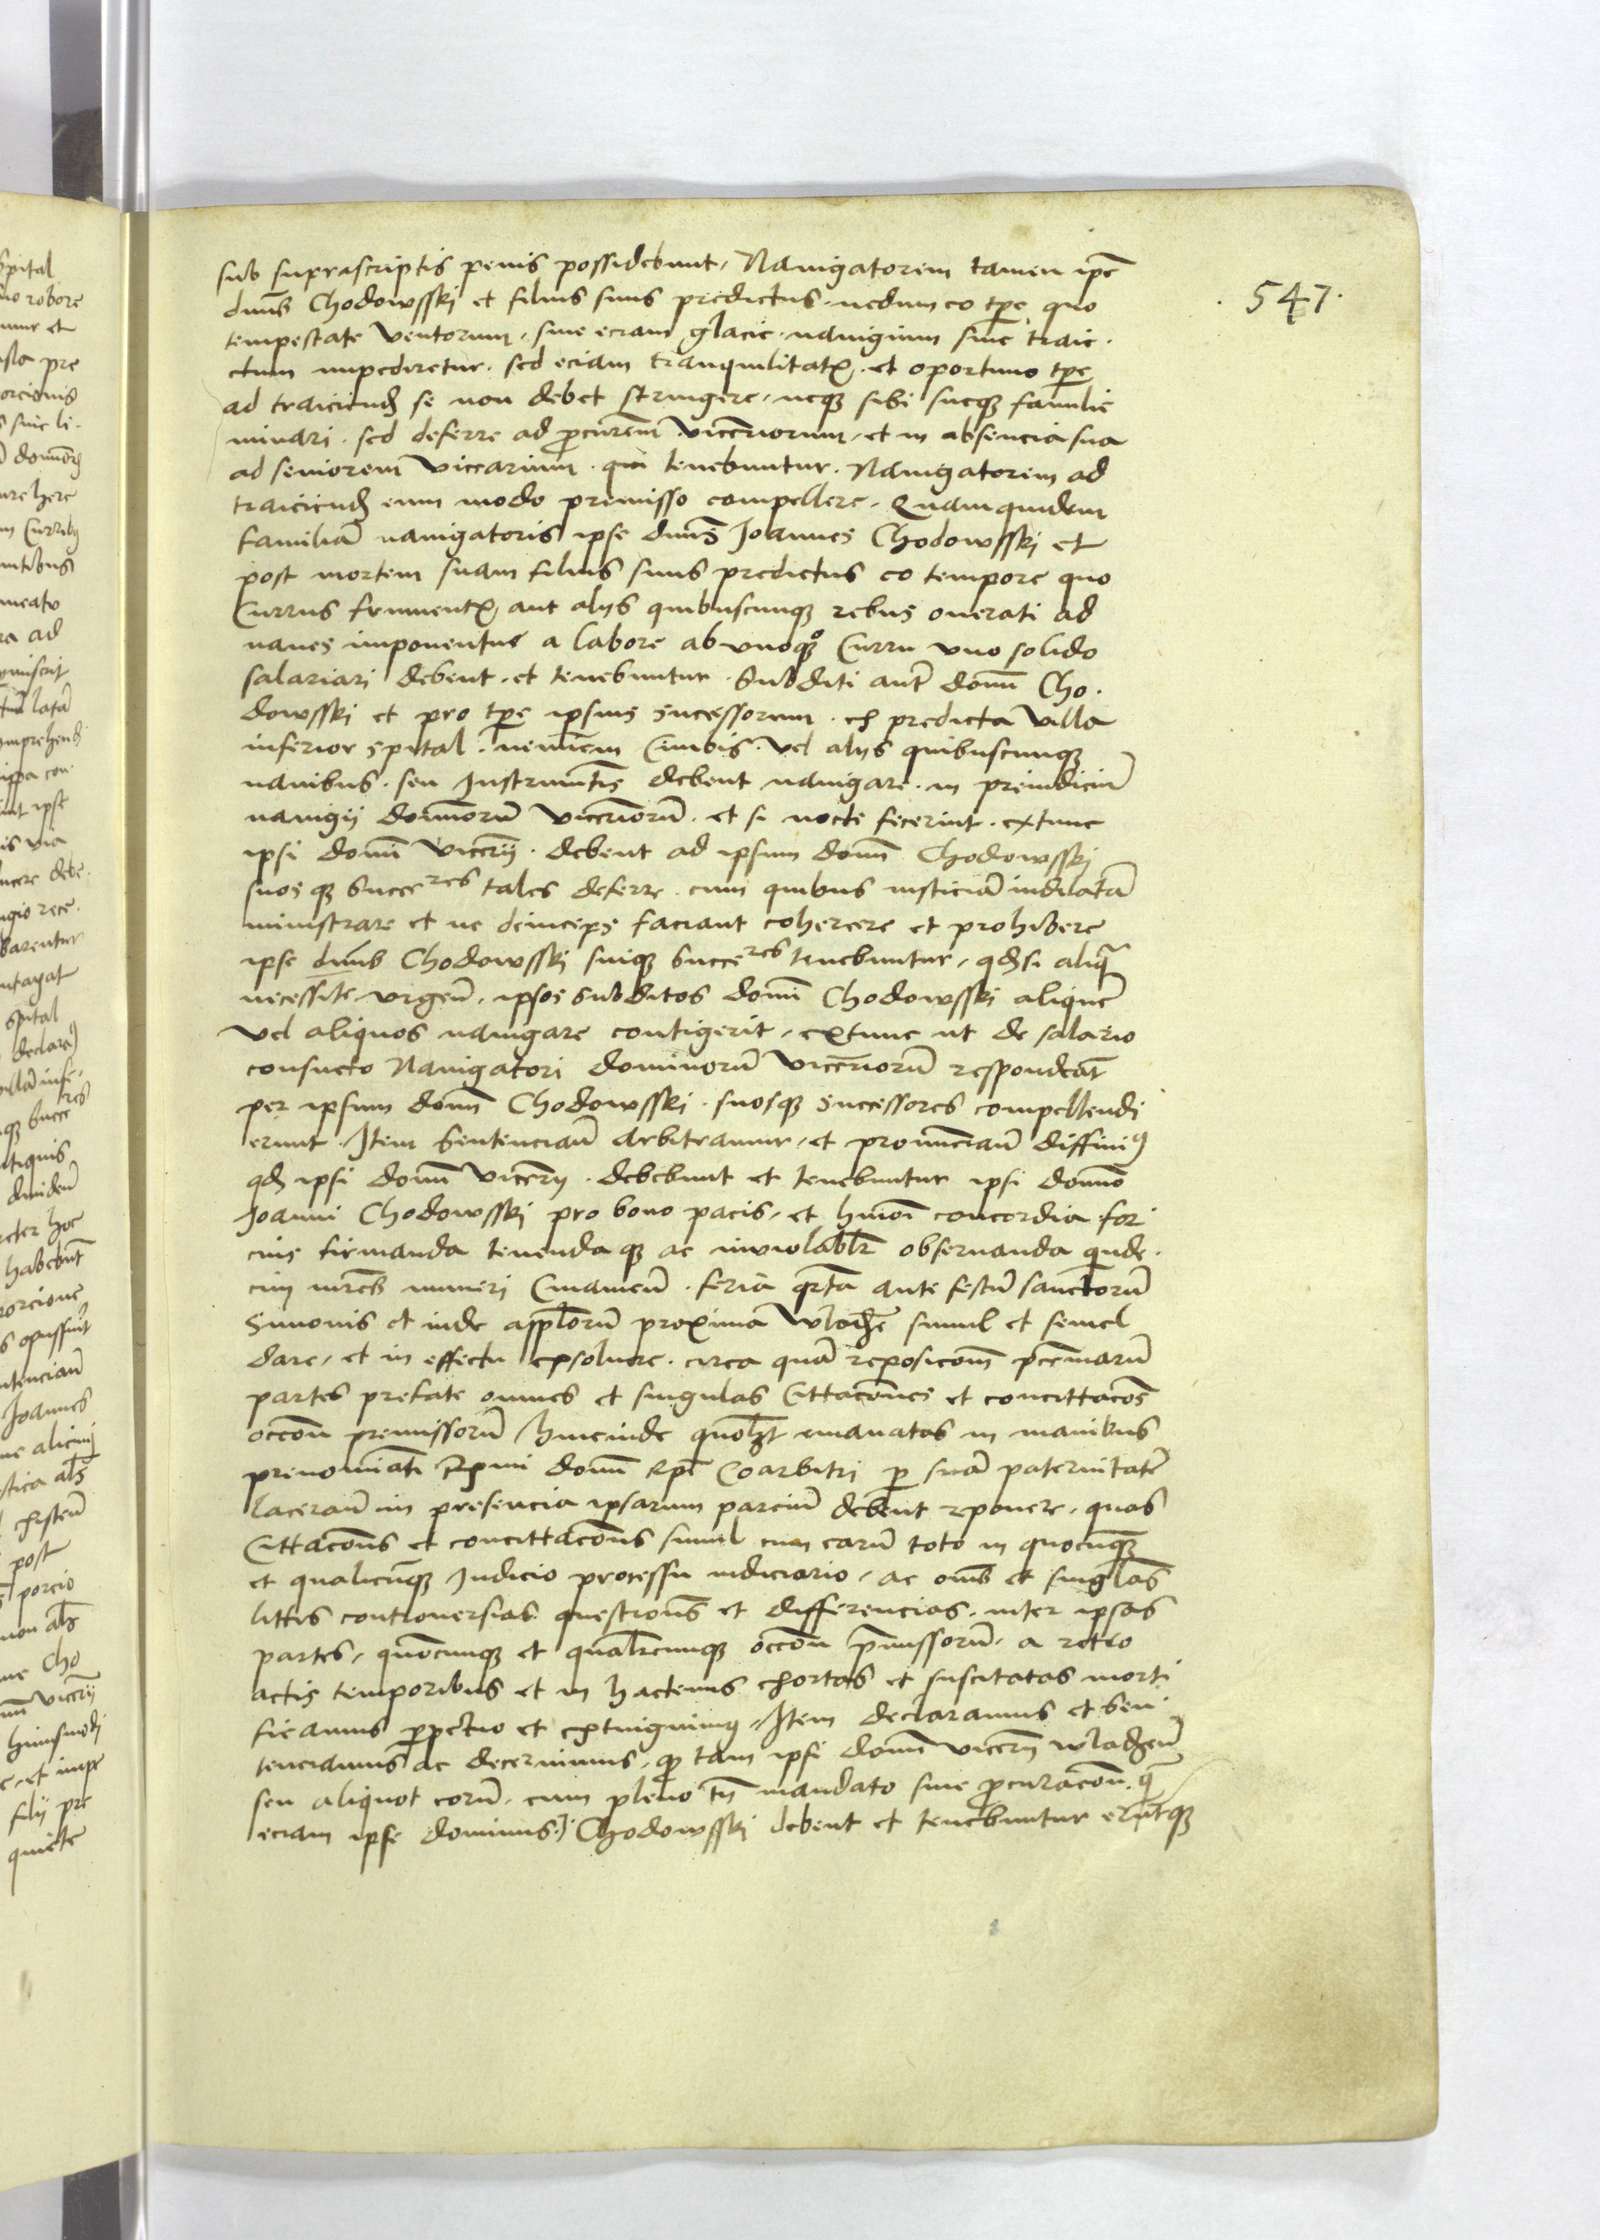 547
sub suprascriptis penis possidebunt, Navigatorem tamen ip̄e
dūns Chodowsski et filius suus predictus . nedum eo tp̄e quo
tempestate ventorum . sive eciam glacie . navigium sive traie .
ctum impediretur . sed eciam tranquilitatꝭ et oportuno tp̄e
ad traiciend̄ se non debet stringere, neqꝫ sibi sueqꝫ familie
minari . sed deferre ad p̄curem̄ viccriorum, et in absencia sua
ad seniorem viccarium . qui tenebuntur . Navigatorem ad
traiciend̄ eum modo premisso compellere . Quamquidem
familiā navigatoris ipse dūns Joannes Chodowsski et
post mortem suam filius suus predictus eo tempore quo
Currus frumentꝭ aut alijs quibuscumqꝫ rebus onerati ad
naves imponentur a labore ab unoqꝫº Curru uno solido
salariari debent . et tenebuntur . Subditi autē domī Cho .
dowsski et pro tp̄e ipsius successorum . eh predicta villa
inferior spital . neminem Cimbis . vel alijs quibuscumqꝫ
navibus . seu Instrumtīs debent navigare . in preiudiciū
navigij dominorū viccriorū . et si nocte fecerint . extunc
ipsi domī viccrij . debent ad ipsum domī Chodowsski
suosqꝫ succeres tales deferre . cum quibus iusticiā indilatā
ministrare et ne deinceps faciant cohercere et prohibere
ipse dūns Chodowsski suiqꝫ succeres tenebuntur, qd̄si aliq̄
necessite urgen̄ . ipsos subditos domī Chodowsski aliquē
vel aliquos navigare contigerit, extunc ut de salario
consueto Navigatori dominorū viccriorū respondeāt
per ipsum domī Chodowsski . suosqꝫ successores compellendi
erunt . Item Sentenciam̄ arbitramur, et pronunciam̄ diffini
qd̄ ipsi domī viccrij . debebunt et tenebuntur ipsi domīo
Joanni Chodowsski pro bono pacis, et hmōi concordia for
cius firmanda tenenda qꝫ ac inviolablr̄ observanda quide .
cim mrcs numeri . feria qrta ante festū sanctorū
Simonis et iude aplorū proxima simul et semel
dare, et in effectu exsolvere . circa quā reposicōm pcc̄niarū
partes prefate omnes et singulas Cittacōnes et concittacōs
occōn premissorū hincinde quolꝫt emanatas in manibus
prenominati Rp̄mi domī Epī Coarbitri p̄ suā paternitatē
laceran̄ in presencia ipsarum parciū debent reponere . quas
Cittacōns et concittacōns simul cum earū toto in quocūqꝫ
et qualicūqꝫ Judicio processu iudiciario, ac om̄s et singlas
littis controversias questiōns et differencias . inter ipsas
partes, quōcunqꝫ et qualrcunqꝫ occōn p̄missorū . a retro
actis temporibus et in hactenus exhortas et suscitatas morti
ficamus p̄petuo et extinguimꝰ . Item declaramus et Sen
tenciamus ac decernimus . qꝫ tam ipsi domī viccrij wladzen̄
seu aliquot eorū . cum pleno tn̄ mandato sive p̄curacōn . q̄
eciam ipse dominus . J . Chodowsski debent et tenebuntur erūtqꝫ